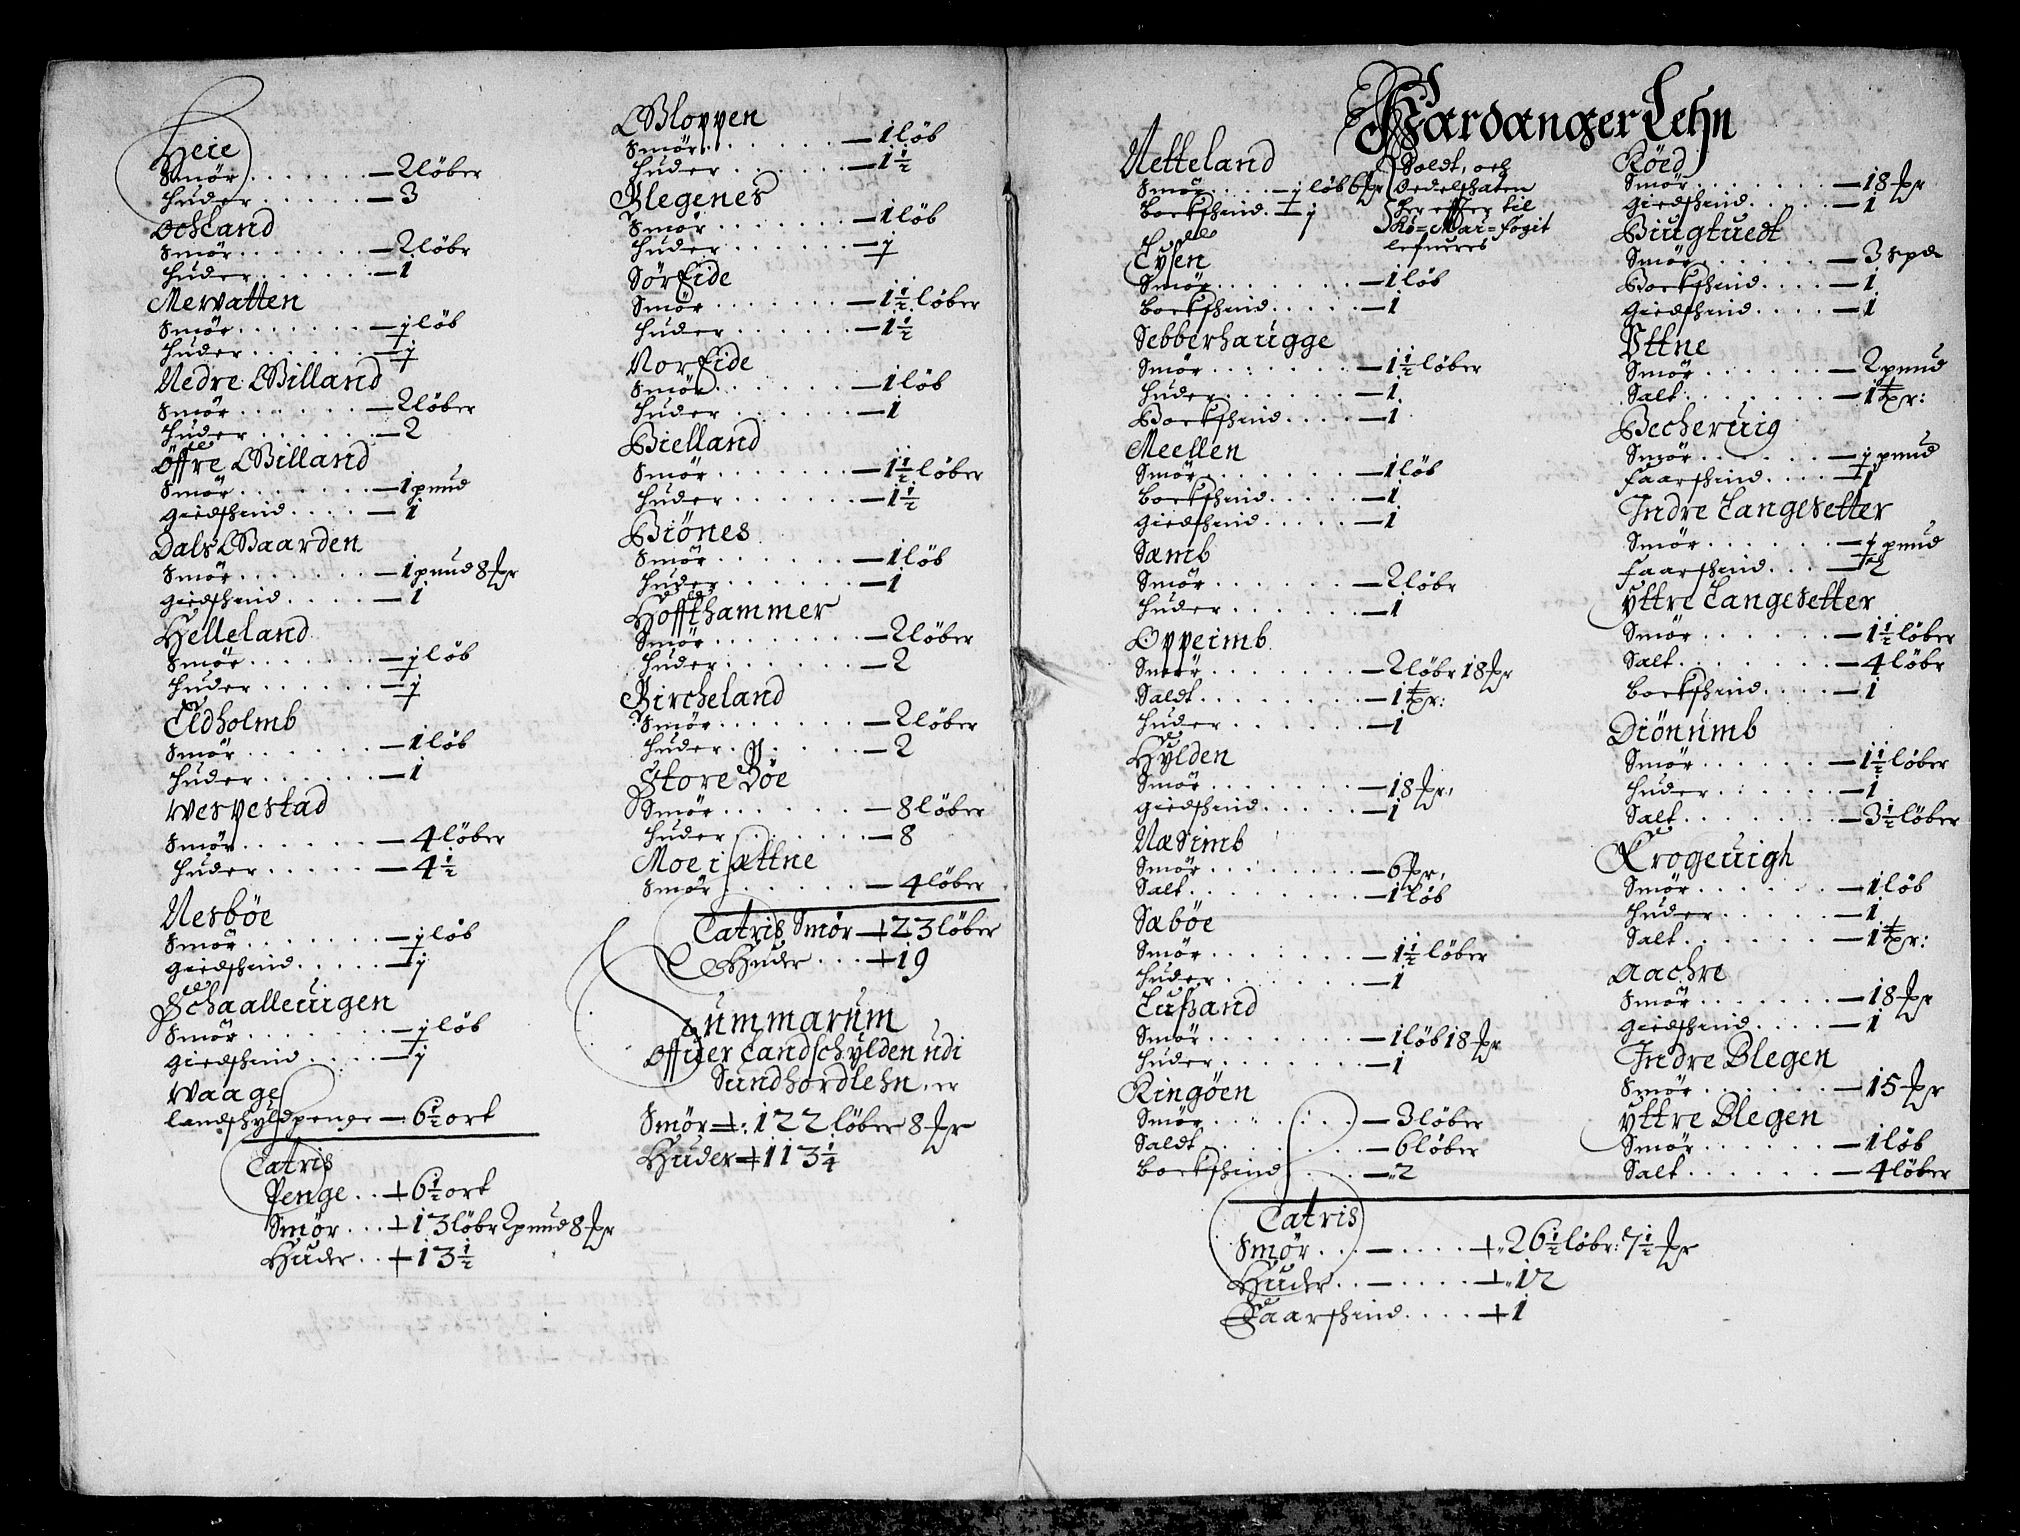 Heie
Smör . . . . . . . — 2 löber
Huder . . . . . . — 3
Ochland
Smör . . . . . . — 2 löbr
Huder . . . . . . — 1
Mewatten
Smör . . . . . . . — j löb
Huder . . . . . . — j
Nedre Billand
Smör . . . . . . — 2 löber
Huder . . . . . . — 2
Öffre Billand
Smör . . . . . . . — 1 pund
Giedschind . . . . — 1
Dals Gaarden
Smör . . . . . . . — 1 pund 8 ℔r
Giedschind . . . . — 1
Helleland
Smör . . . . . . . — j löb
Huder . . . . . . — j
Eldholmb
Smör . . . . . . — 1 löb
Huder . . . . . . — 1
Wespestad
Smör . . . . . . — 4 löber
Huder . . . . . — 4½
Nesböe
Smör . . . . . . . — j löb
Giedschind . . . . — j
Schaalleuigen
Smör . . . . . . . — j löb
Giedschind . . . . — j
Waage
Landschyldpenge — 6½ ort
Latris
Penge . . + 6½ ort
Smör . . . + 13 löbr 2 pund 8 ℔r
Huder . . + 13½
Gloppen
Smör . . . . . . . — 1 löb
Huder . . . . . . — 1½
Blegenes
Smör . . . . . . . — 1 löb
Huder . . . . . . — j
SörEide
Smör . . . . . . . — 1½ löber
Huder . . . . . . — 1½
NorEide
Smör . . . . . . . — 1 löb
Huder . . . . . . — 1
Bielland
Smör . . . . . . . — 1½ löber
Huder . . . . . . — 1½
Biönes
Smör . . . . . . . — 1 löb
Huder . . . . . . — 1
Hoffthammer
Smör . . . . . . . — 2 löber
Huder . . . . . . — 2
Bircheland
Smör . . . . . . . — 2 löber
Huder . . . . . . — 2
Store Böe
Smör . . . . . . . — 8 löber
Huder . . . . . . — 8
Moe i ættne
Smör . . . . . . — 4 löber
Latris Smör + 23 löber
Huder . . . + 19
Summarum
Offuer Landschylden udi
Sundhordlehn, er
Smör +. 122 löber 8 ℔r
Huder + 113¼
Hardanger Lehn
Netteland
Smör . . . . — j löb 6 ℔r
Bockschind . + j
Soldt, och
Oedelschaten
her effter til
Kö=Mar=fogit
lefueres
Lysen
Smör . . . . . . . — 1 löb
Bockschind . . . . . — 1
Sebberhaugge
Smör . . . . . . . — 1½ löber
Huder . . . . . . — 1
Bockschind . . . . — 1
Meellen
Smör . . . . . . . — 1 löb
Bockschind . . . . . — 1
Giedschind . . . . . — 1
Sæmb
Smör . . . . . . . — 2 löbr
Huder . . . . . . — 1
Oppeimb
Smör . . . . . . . — 2 löbr 18 ℔r
Saldt . . . . . . . — 1 tpr:
Huder . . . . . . — 1
Hylden
Smör . . . . . . . — 18 ℔r,
Giedschind . . . . . — 1
Næsimb
Smör . . . . . . . — 6 ℔r,
Salt . . . . . . . — 1 löb
Sæböe
Smör . . . . . . . — 1½ löber
Huder . . . . . . — 1
Lussand
Smör . . . . . . . — 1 löb 18 ℔r
Huder . . . . . . — 1
Ringöen
Smör . . . . . . . — 3 löber
Saldt . . . . . . . — 6 löber
Bockschind . . . . — 2
Röed
Smör . . . . . . . — 18 ℔r
Giedschind . . . . . — 1
Biugtuedt
Smör . . . . . . . — 3 spd
Bockschind . . . . — 1
Giedschind . . . . — 1
Vttne
Smör . . . . . . . — 2 pund
Salt . . . . . . . — 1 tpr:
Becheruig
Smör . . . . . . . — j pund
Faarschind . . . . + 1
Indre Langesetter
Smör . . . . . . . — j pund
Faarschind . . . — 2
Yttre Langesetter
Smör . . . . . . . — 1½ löber
Salt . . . . . . . — 4 löbr
Bockschind . . . . — 1
Diönumb
Smör . . . . . . . — 1½ löber
Huder . . . . . . — 1
Salt . . . . . . . — 3½ löber
Krogeuigh
Smör . . . . . . . — 1 löb
Huder . . . . . . — 1
Salt . . . . . . . — 1 tpr:
Aachre
Smör . . . . . . . — 18 ℔r
Giedschind . . . . — 1
Indre Blegen
Smör . . . . . . . — 15 ℔r
Yttre Blegen
Smör . . . . . . . — 1 löb
Salt . . . . . . . — 4 löber
Latris
Smör . . . — . . . . +. 26½ löbr: 7½ ℔r
Huder . . — . . . . +. 12
Faarschind . . . . + 1